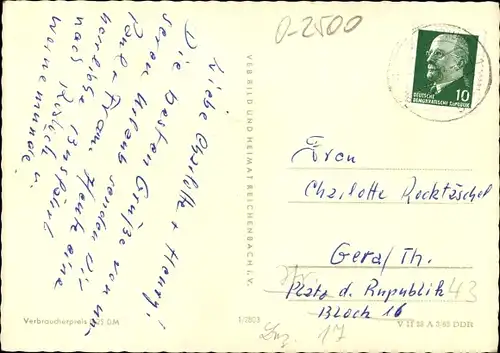 0-2500
Liebe Charlotte + Henry!
Die besten Grüße von un-
seren Urlaub senden Dir
Paul + Frau. Heute eine
herrliche Busfahrt
nach Rostock
Warnemünde.
VEB BILD UND HEIMAT REICHENBACH i. V.
DEUTSCHE
DEMOKRATISCHE REPUBLIK
10
Frau
Charlotte Recktäschel
Gera/Th.
Str.
Platz d. Republik 43
Block 16
17
Verbraucherpreis 0,25 DM
1/7803
V 11 28 A 3/65 DDR